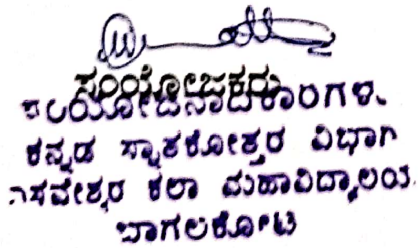 ಸಂಯೋಜಕರು
ಸಂಯೋಜನಾಧಿಕಾರಿಗಳು
ಕನ್ನಡ ಸ್ನಾತಕೋತ್ತರ ವಿಭಾಗ
ಬಸವೇಶ್ವರ ಕಲಾ ಮಹಾವಿದ್ಯಾಲಯ
ಬಾಗಲಕೋಟ